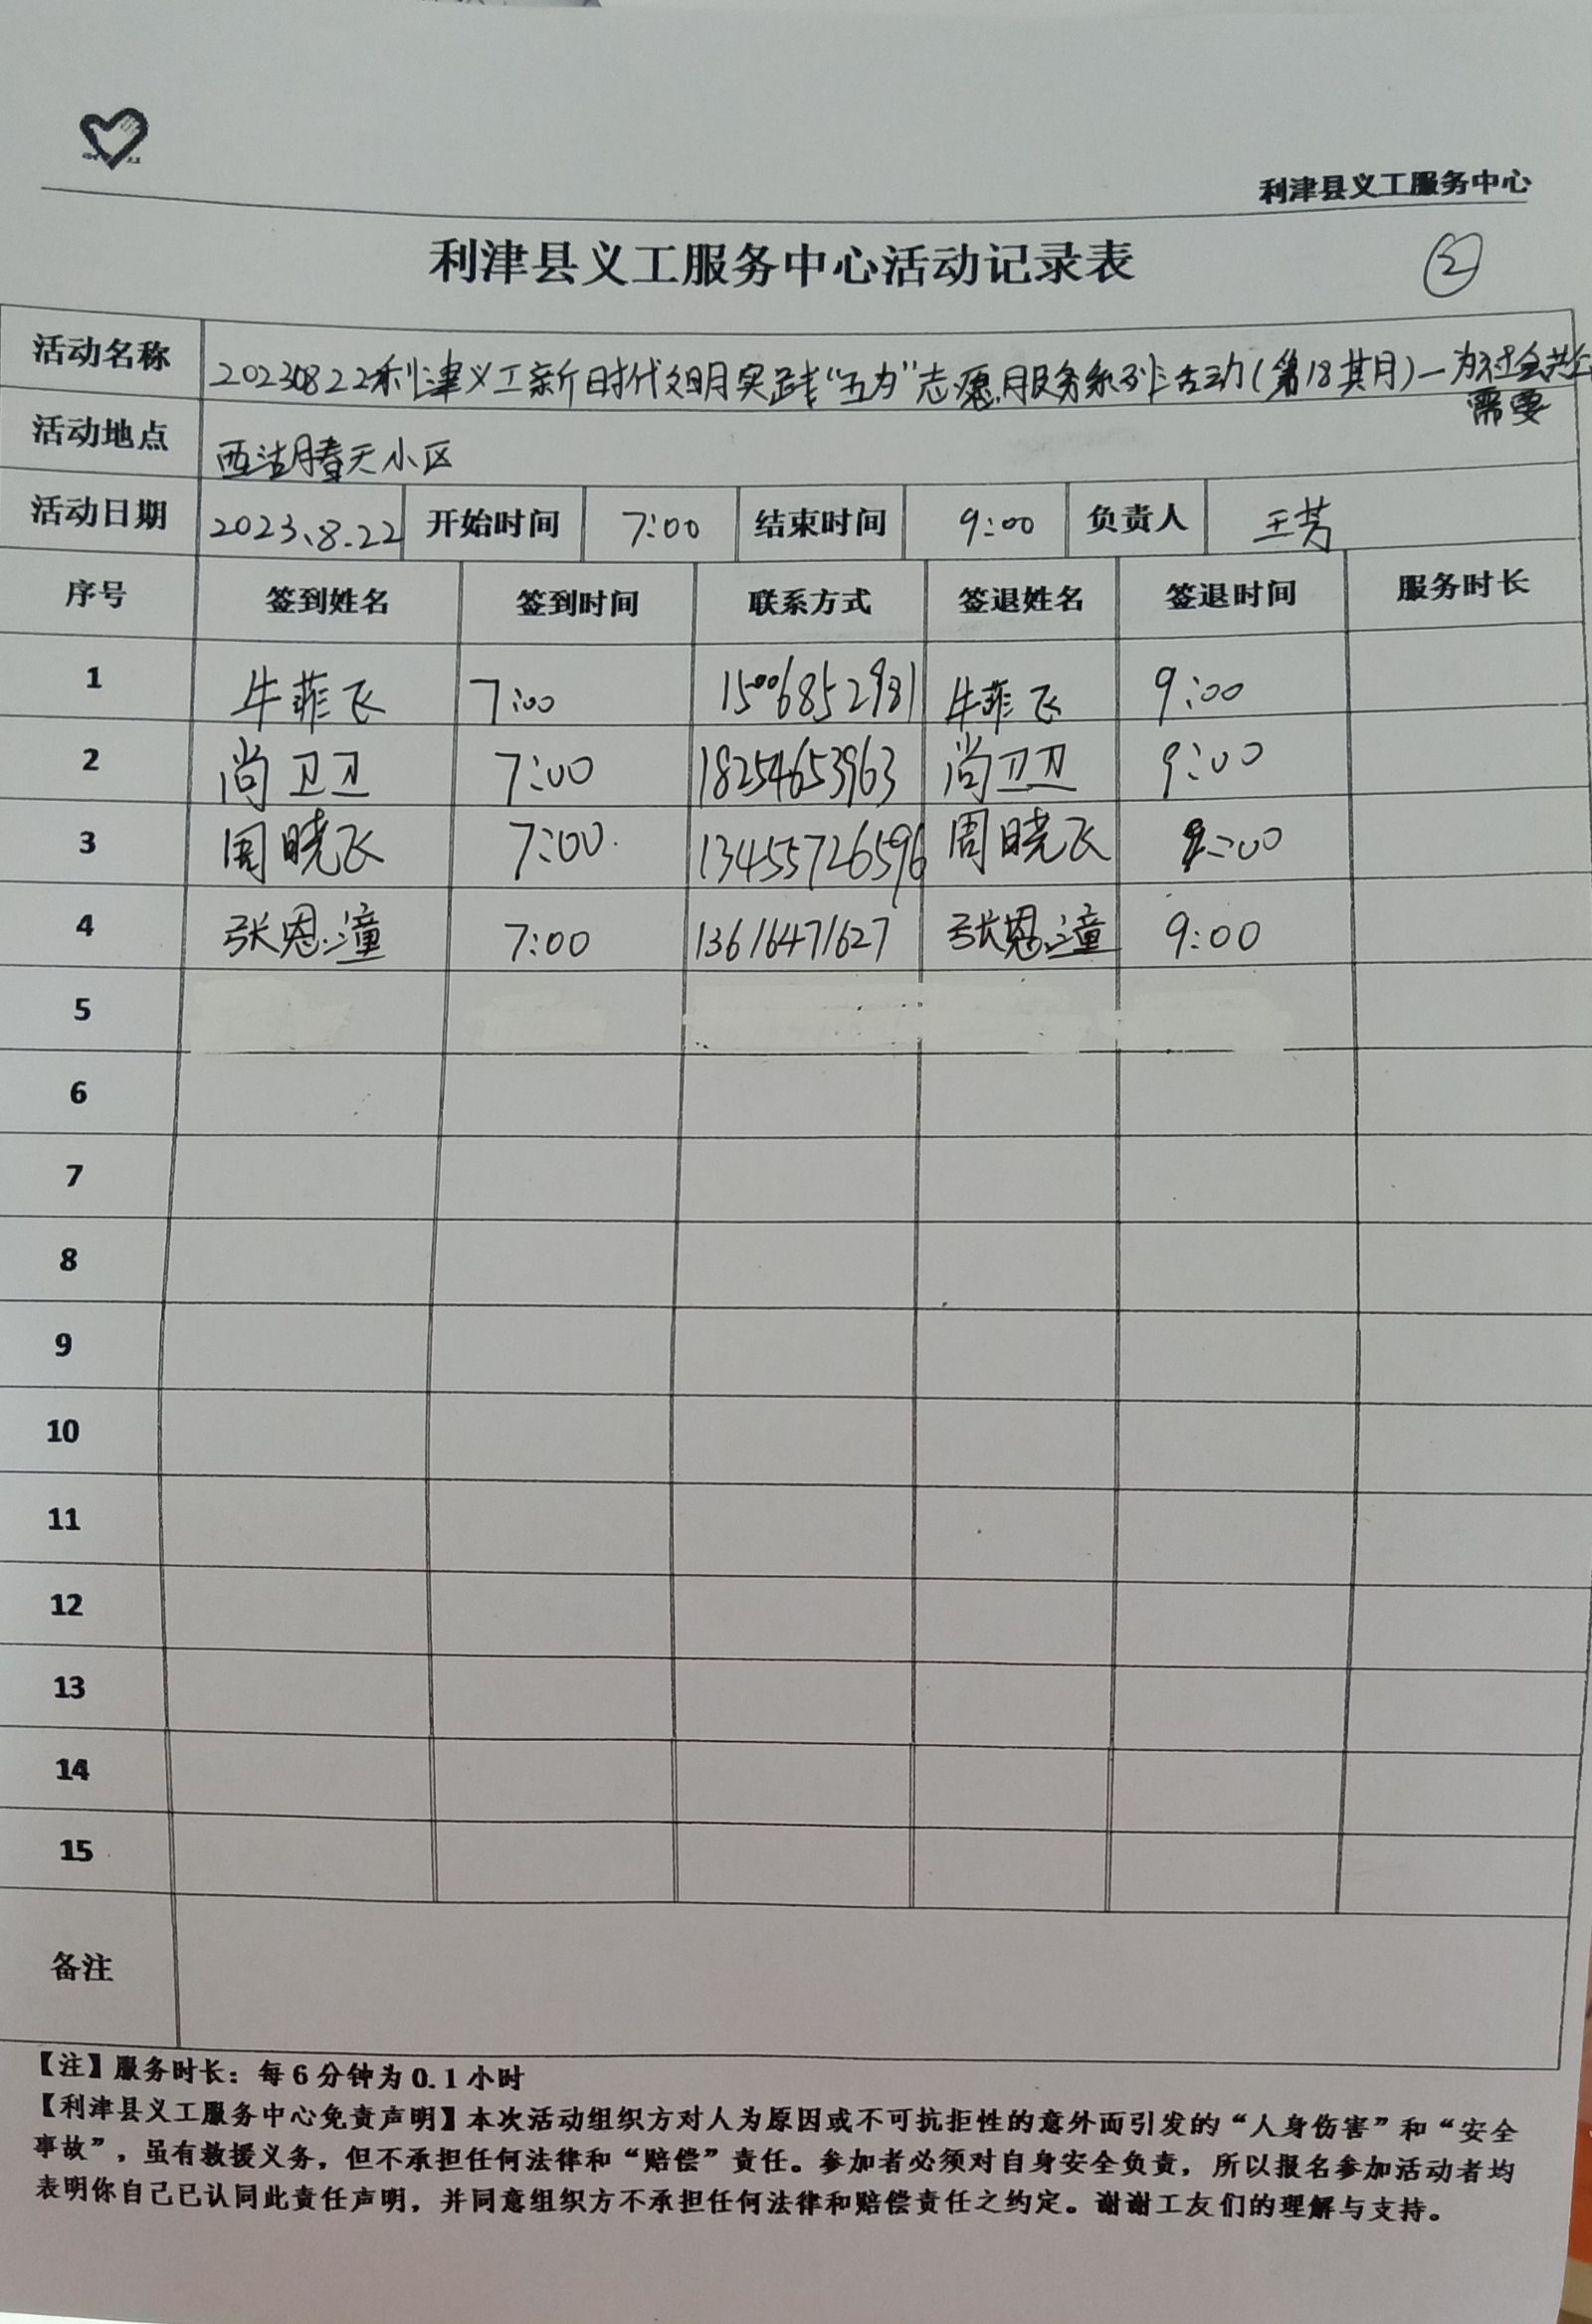 利津县义工服务中心
利津县义工服务中心活动记录表
②
活动名称 20230822利津义工新时代文明实践“五为”志愿服务系列活动(第18期)—为社会共
需要
活动地点 西湖腾天小区
活动日期 2023.8.22 开始时间 7:00 结束时间 9:00 负责人 王芳
序号 签到姓名 签到时间 联系方式 签退姓名 签退时间 服务时长
1 牛菲飞 7:00 15006852981 牛菲飞 9:00
2 尚卫卫 7:00 18254653963 尚卫卫 9:00
3 周晓飞 7:00 13455726596 周晓飞 9:00
4 张恩潼 7:00 13616471627 张恩潼 9:00
5
6
7
8
9
10
11
12
13
14
15
备注
【注】服务时长：每6分钟为0.1小时
【利津县义工服务中心免责声明】本次活动组织方对人为原因或不可抗拒性的意外面引发的“人身伤害”和“安全
事故”，虽有救援义务，但不承担任何法律和“赔偿”责任。参加者必须对自身安全负责，所以报名参加活动者均
表明你自己已认同此责任声明，并同意组织方不承担任何法律和赔偿责任之约定。谢谢工友们的理解与支持。